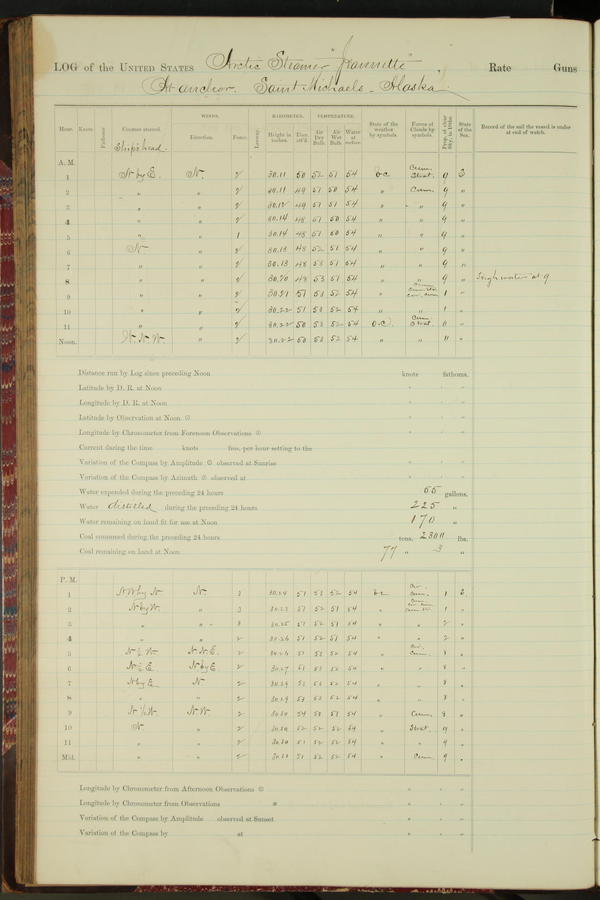 LOG of the UNITED STATES Arctic Steamer "Jeannette" Rate Guns
At anchor. Saint Michaels - Alaska
Hour. Knots. Fathoms. Courses steered. WINDS. Direction. Force. Leeway. BAROMETER. Height in inches. Ther. att'd. TEMPERATURE. Air Dry Bulb. Air Wet Bulb. Water at surface. State of the weather by symbols. Forms of Clouds by symbols. Prop. of clear Sky, in 10ths. State of the Sea. Record of the sail the vessel is under at end of watch.
Ship's head.
A. M.
1 N by E. N. 2 30.11 50 52 51 54 b.c. Cum. Strat. 9 S
2 " " 2 30.11 49 51 50 54 " Cum. 9 "
3 " " 2 30.12 49 51 51 54 " " 9 "
4 " " 2 30.14 48 51 50 54 " " 9 "
5 " " 1 30.14 48 51 50 54 " " 9 "
6 N " 2 30.18 48 52 51 54 " " 9 "
7 " " 2 30.18 48 53 51 54 " " 9 "
8 " " 2 30.20 48 53 51 54 " " 9 " High water at 9
9 " " 2 30.21 51 53 52 54 " 1 "
10 " " 2 30.22 51 53 52 54 " " 1 "
11 " " 2 30.22 50 53 52 54 o.c. Cum. Strat. 0 "
Noon. N. N. W. " 2 30.22 50 53 52 54 " " "
Distance run by Log since preceding Noon knots fathoms.
Latitude by D. R. at Noon
Longitude by D. R. at Noon
Latitude by Observation at Noon
Longitude by Chronometer from Forenoon Observations
Current during the time knots fms. per hour setting to the
Variation of the Compass by Amplitude observed at Sunrise
Variation of the Compass by Azimuth observed at
Water expended during the preceding 24 hours 55 gallons.
Water distilled during the preceding 24 hours 225 "
Water remaining on hand fit for use at Noon 170 "
Coal consumed during the preceding 24 hours tons. 2300 lbs.
Coal remaining on hand at Noon 77 " 3 "
P. M.
1 N. 3 30.24 51 53 52 54 b.c. Cir. Cum. 1 2
2 N by W. " 3 30.23 51 52 51 54 " 1 "
3 " " 3 30.25 51 52 51 54 " " 2 "
4 " " 2 30.26 51 52 51 54 " " 2 "
5 N ½ W. N. N. E. 2 30.26 51 53 52 54 " Cir. Cum. 8 "
6 N ½ E. N by E. 2 30.27 51 53 52 54 " " 8 "
7 N by E. N 2 30.29 53 53 52 54 " " 8 "
8 " " 2 30.29 53 53 52 54 " " 8 "
9 N ½ W. N. W. 2 30.30 54 53 51 54 " Cum. 8 "
10 N. " 2 30.30 52 52 52 54 " Strat. 9 "
11 " " 2 30.30 51 52 52 54 " " 9 "
Mid. " " 2 30.30 51 52 52 54 " Cum. 9 "
Longitude by Chronometer from Afternoon Observations
Longitude by Chronometer from Observations
Variation of the Compass by Amplitude observed at Sunset
Variation of the Compass by at